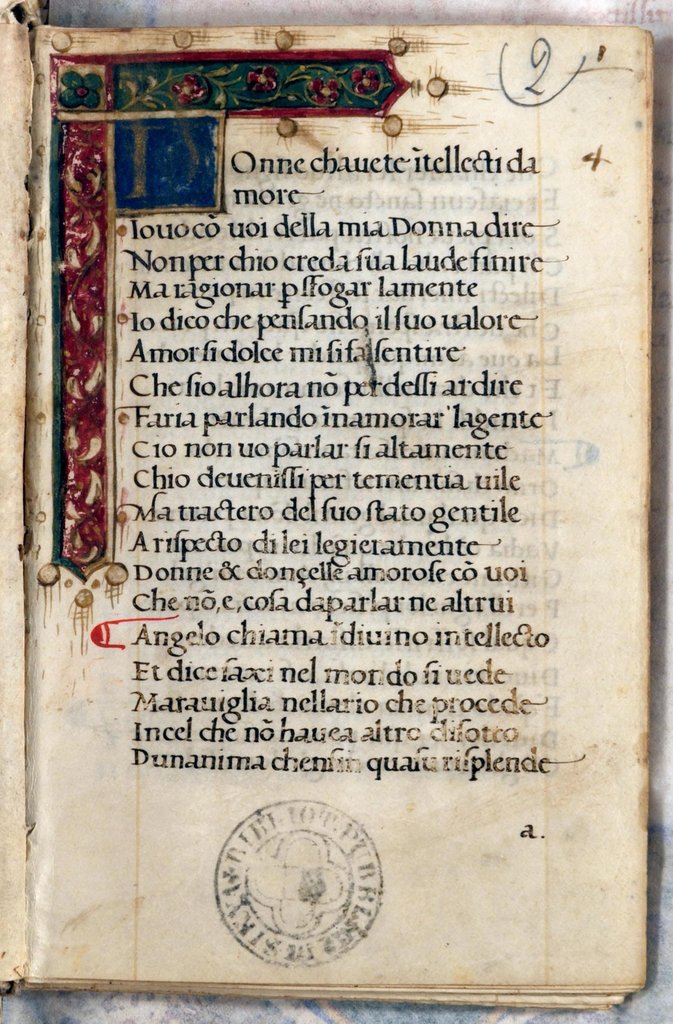 2
4
D
Onne chauete ĩtellecti da
more
Io uo cõ uoi della mia Donna dire
Non per chio creda sua laude finire
Ma ragionar p̱ sfogar lamente
Io dico che pensando il suo ualore
Amor si dolce mi si fa sentire
Che sio alhora nõ perdessi ardire
Faria parlando ĩnamorar lagente
Cio non uo parlar si altamente
Chio deuenissi per tementia uile
Ma tractero del suo stato gentile
A rispecto di lei legieramente
Donne & donçelle amorose cõ uoi
Che nõ, e, cosa da parlarne altrui
Angelo chiama ĩ diuino intellecto
Et dice nel mondo si uede
Marauiglia nel lacto che procede
In cel che nõ hauea altro difecto
Dunanima risplende
a.
BIBLIOT. PUBBLICA SIENA